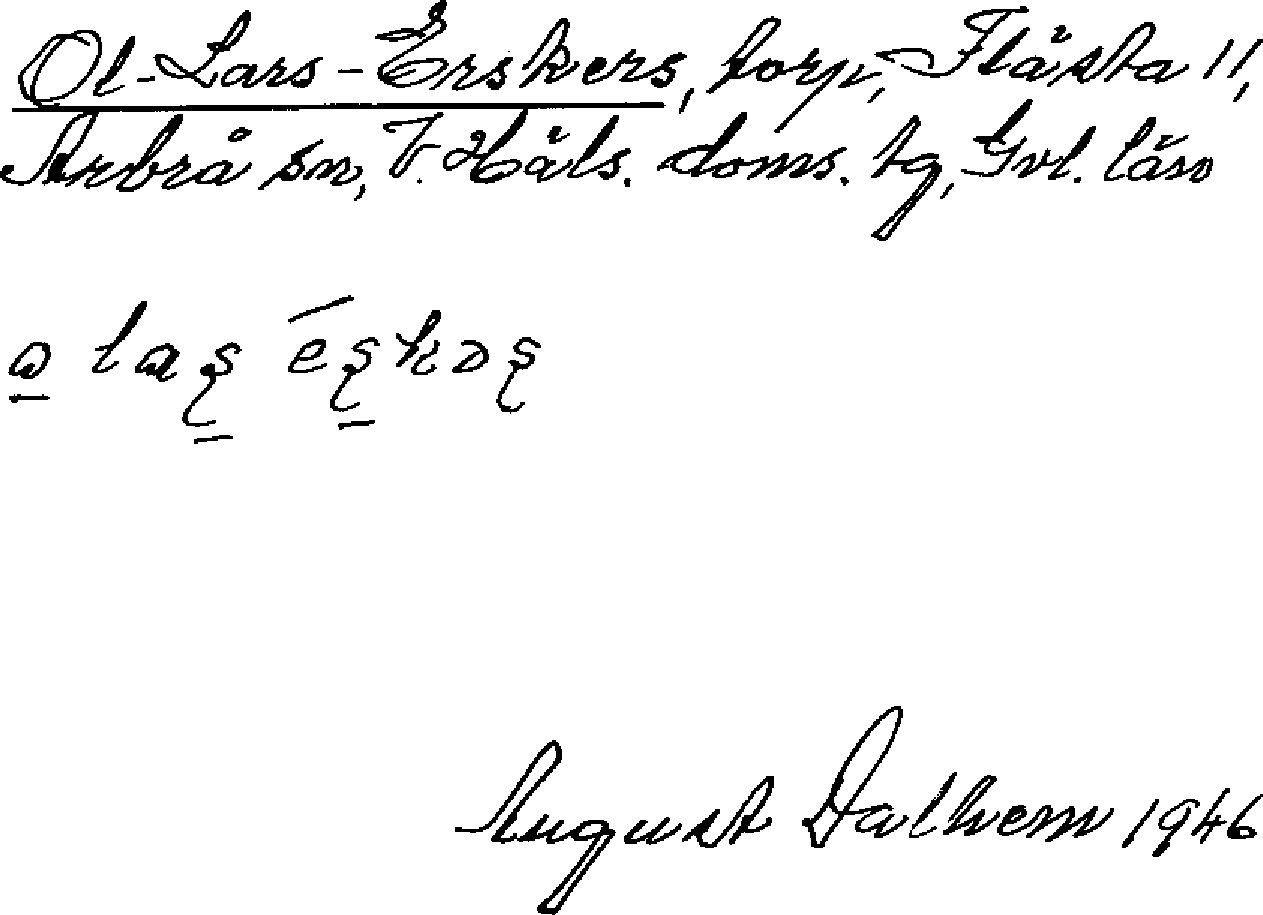 Ol-Lars-Erskers, torp, Flästa 11,
Arbrå sn, V. Häls. doms. tg, Gvl. län
August Dalhem 1946